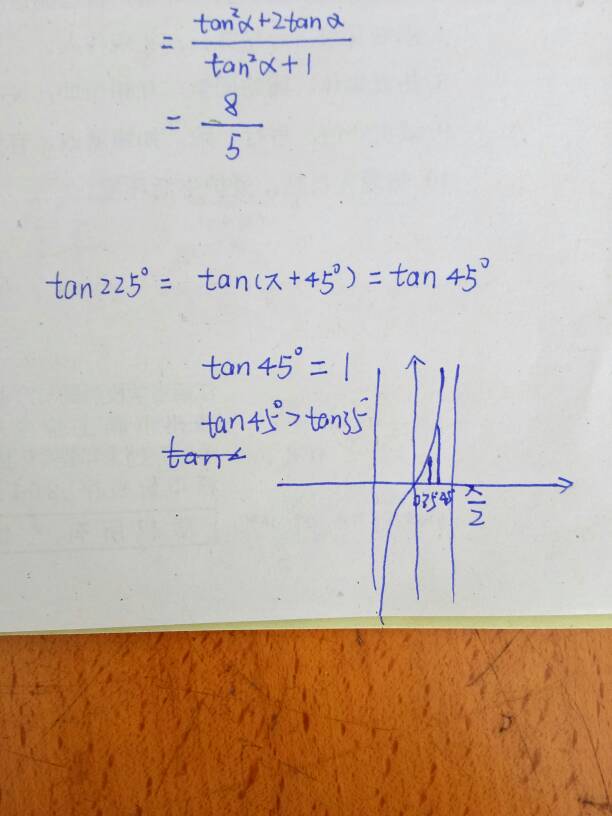 = (tan²α+2tanα)/(tan²α+1)
= 8/5
tan225° = tan(π+45°) = tan45°
tan45° = 1
tan45°>tan35°
tanα
0 35 45 π/2